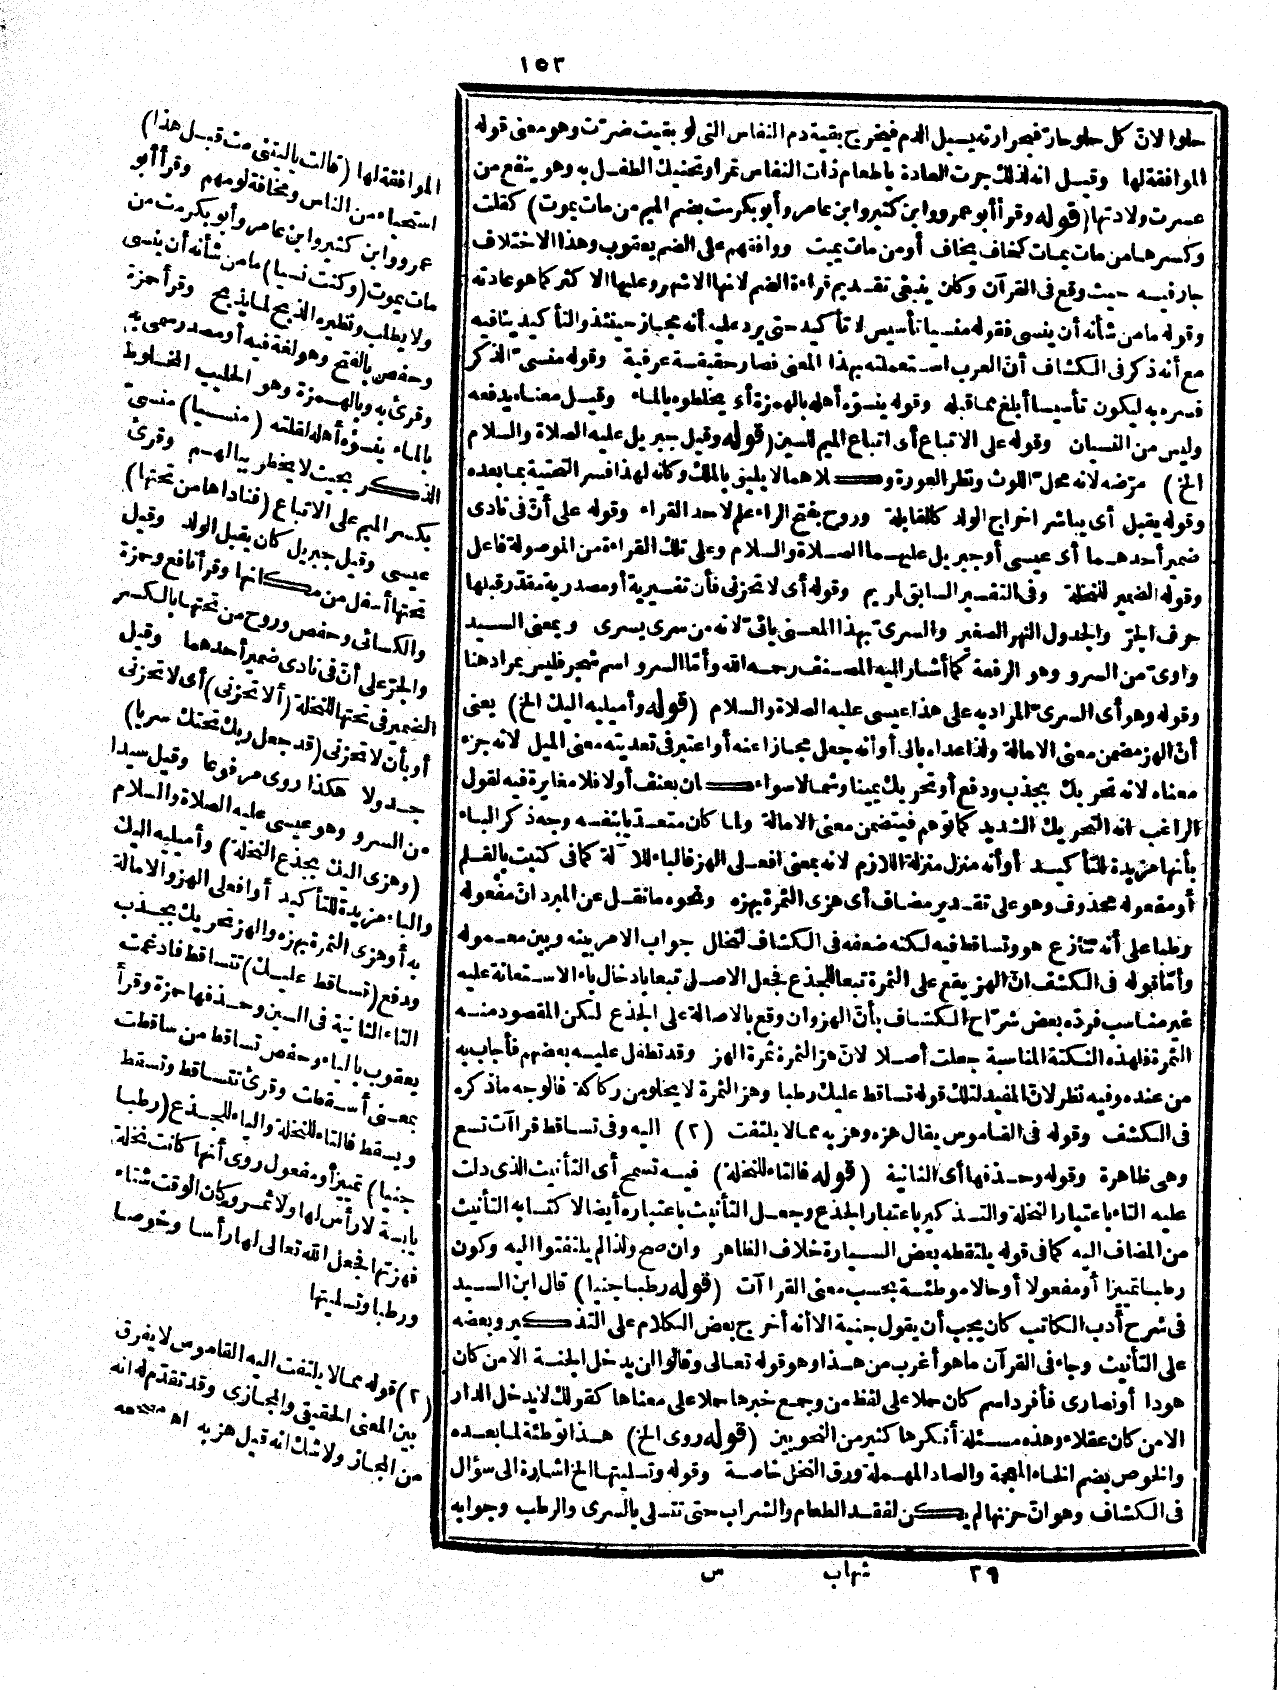 ١٥٣
حلوا لانّ كل حلو حارّ فبحرارته يسيل الدم فيخرج بقية دم النفاس التى لو بقيت ضرّت وهو معنى قوله
الموافقة لها وقيل انه لذلك جرت العادة باطعام ذات النفاس تمرا وتحنيك الطفل به وهو ينفع من
عسرت ولادتها (قوله وقرأ أبو عمرو وابن كثير وابن عامر وأبو بكر مت بضم الميم من مات يموت) كقلت
وكسرها من مات يمات كخاف يخاف أو من مات يميت ووافقهم على الضم يعقوب وهذا الاختلاف
جار فيه حيث وقع فى القرآن وكان ينبغى تقديم قراءة الضم لانها الاشهر وعليها الاكثر كما هو عادته
وقوله ما من شأنه أن ينسى فقوله منسيا تأسيس لا تأكيد حتى يرد عليه أنه مجاز حينئذ والتأكيد ينافيه
مع أنه ذكر فى الكشاف أنّ العرب استعملته بهذا المعنى فصار حقيقة عرفية وقوله منسىّ الذكر
فسره به ليكون تأسيسا أبلغ مما قبله وقوله ينسؤه أهله بالهمزة أى يخلطوه بالماء وقيل معناه يدفعه
وليس من النسيان وقوله على الاتباع أى اتباع الميم للسين (قوله وقيل جبريل عليه الصلاة والسلام
الخ) مرّضه لانه محلّ اللوث ونظر العورة وكلاهما لا يليق بالملك وكانه لهذا فسر التحتية بما بعده
وقوله يقبل أى يباشر اخراج الولد كالقابلة وروح بفتح الراء علم لاحد القراء وقوله على أنّ فى نادى
ضمير أحدهما أى عيسى أو جبريل عليهما الصلاة والسلام وعلى تلك القراءة من الموصولة فاعل
وقوله الضمير للنخلة وفى التفسير السابق لمريم وقوله أى لا تحزنى فأن تفسيرية أو مصدرية مقدّر قبلها
حرف الجرّ والجدول النهر الصغير والسرىّ بهذا المعنى يائىّ لانه من سرى يسرى وبمعنى السيد
واوىّ من السرو وهو الرفعة كما أشار اليه المصنف رحمه الله وأمّا السرو اسم شجر فليس بمراد هنا
وقوله وهو أى السرىّ المراد به على هذا عيسى عليه الصلاة والسلام (قوله وأميليه اليك الخ) يعنى
أنّ الهز مضمن معنى الامالة ولذا عداه بالى أو أنه جعل مجازا عنه أو اعتبر فى تعديته معنى الميل لانه جزء
معناه لانه تحريك بجذب ودفع أو تحريك يمينا وشمالا سواء كان بعنف أو لا فلا مغايرة فيه لقول
الراغب انه التحريك الشديد كما توهم فيتضمن معنى الامالة ولما كان متعدّيا بنفسه وجه ذكر الباء
بأنها مزيدة للتأكيد أو أنه منزل منزلة اللازم لانه بمعنى افعلى الهز فالباء للآلة كما فى كتبت بالقلم
أو مفعوله محذوف وهو على تقدير مضاف أى هزى الثمرة بهزه ونحوه ما نقل عن المبرد انّ مفعوله
رطبا على أنه تنازع هو وتساقط فيه لكنه ضعفه فى الكشاف لتخال جواب الامر بينه وبين معموله
وأمّا قوله فى الكشف انّ الهز يقع على الثمرة تبعا للجذع فجعل الاصل تبعا بادخال باء الاستعانة عليه
غير مناسب فردّه بعض شرّاح الكشاف بأنّ الهز وان وقع بالاصالة على الجذع لكن المقصود منه
الثمرة فلهذه النكتة المناسبة جعلت أصلا لانّ هز الثمرة ثمرة الهز وقد تطفل عليه بعضهم فأجاب به
من عنده وفيه نظر لانّ المفيد لتلك قوله تساقط عليك رطبا وهز الثمرة لا يخلو من ركاكة فالوجه ماذكره
فى الكشف وقوله فى القاموس يقال هزه وهز به مما لا يلتفت (٢) اليه وفى تساقط قراآت تسع
وهى ظاهرة وقوله وحذفها أى الثانية (قوله فالتاء للنخلة) فيه تسمح أى التأنيث الذى دلت
عليه التاء باعتبار النخلة والتذكير باعتبار الجذع وجعل التأنيث باعتباره أيضا لاكتسابه التأنيث
من المضاف اليه كما فى قوله يلتقطه بعض السيارة خلاف الظاهر وان صح ولذا لم يلتفتوا اليه وكون
رطبا تمييزا أو مفعولا أو حالا موطئة بحسب معنى القراآت (قوله رطبا جنيا) قال ابن السيد
فى شرح أدب الكاتب كان يجب أن يقول جنية الا أنه أخرج بعض الكلام على التذكير وبعضه
على التأنيث وجاء فى القرآن ما هو أغرب من هذا وهو قوله تعالى وقالوا لن يدخل الجنة الا من كان
هودا أو نصارى فأفرد اسم كان حملا على لفظ من وجمع خبرها حملا على معناها كقولك لا يدخل الدار
الا من كان عقلاء وهذه مسئلة أنكرها كثير من النحويين (قوله روى الخ) هذا توطئة لما بعده
والخوص بضم الخاء المعجمة والصاد المهملة ورق النخل خاصة وقوله وتسليتها الخ اشارة الى سؤال
فى الكشاف وهو انّ حزنها لم يكن لفقد الطعام والشراب حتى تتسلى بالسرى والرطب وجوابه
٢٩ شهاب س
الموافقة لها (قالت ياليتنى مت قبل هذا)
استحياء من الناس ومخافة لومهم وقرأ أبو
عمرو وابن كثير وابن عامر وأبو بكر مت من
مات يموت (وكنت نسيا) ما من شأنه أن ينسى
ولا يطلب ونظيره الذبح لما يذبح وقرأ حمزة
وحفص بالفتح وهو لغة فيه أو مصدر سمى به
وقرئ به وبالهمزة وهو الحليب المخلوط
بالماء ينسؤه أهله لقلته (منسيا) منسىّ
الذكر بحيث لا يخطر ببالهم وقرئ
بكسر الميم على الاتباع (فناداها من تحتها)
عيسى وقيل جبريل كان يقبل الولد وقيل
تحتها أسفل من مكانها وقرأ نافع وحمزة
والكسائى وحفص وروح من تحتها بالكسر
والجرّ على أنّ فى نادى ضمير أحدهما وقيل
الضمير فى تحتها للنخلة (ألا تحزنى) أى لا تحزنى
أو بأن لا تحزنى (قد جعل ربك تحتك سريا)
جدولا هكذا روى مرفوعا وقيل سيدا
من السرو وهو عيسى عليه الصلاة والسلام
(وهزى اليك بجذع النخلة) وأميليه اليك
والباء مزيدة للتأكيد أو افعلى الهز والامالة
به أو هزى الثمرة بهزه والهز تحريك بجذب
ودفع (تساقط عليك) تتساقط فادغمت
التاء الثانية فى السين وحذفها حمزة وقرأ
يعقوب بالياء وحفص تساقط من ساقطت
بمعنى أسقطت وقرئ تتساقط وتسقط
ويسقط فالتاء للنخلة والياء للجذع (رطبا
جنيا) تمييز أو مفعول روى أنها كانت نخلة
يابسة لا رأس لها ولا ثمر وكان الوقت شتاء
فهزتها فجعل الله تعالى لها رأسا وخوصا
ورطبا وتسليتها
(٢) قوله مما لا يلتفت اليه القاموس لا يفرق
بين المعنى الحقيقى والمجازى وقد تقدّم له انه
من المجاز ولا شك انه قيل هز به اه مصححه